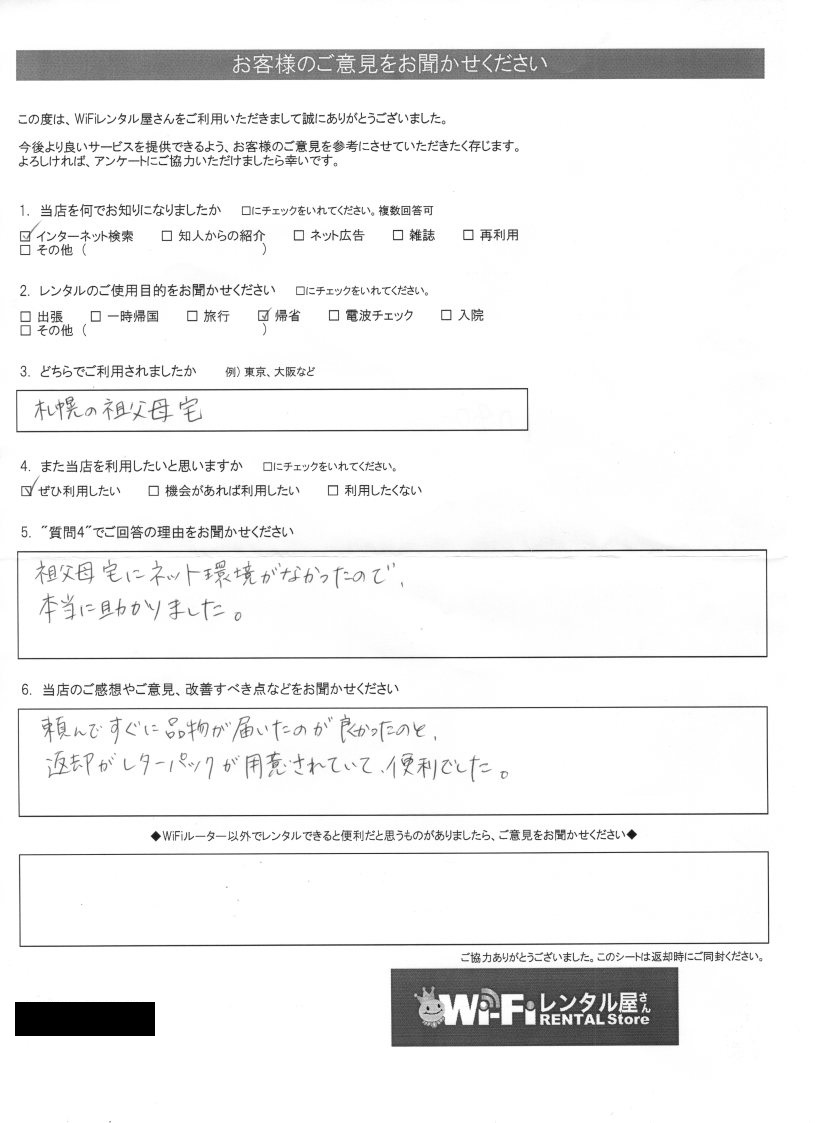 お客様のご意見をお聞かせください
この度は、WiFiレンタル屋さんをご利用いただきまして誠にありがとうございました。
今後より良いサービスを提供できるよう、お客様のご意見を参考にさせていただきたく存じます。
よろしければ、アンケートにご協力いただけましたら幸いです。
1. 当店を何でお知りになりましたか □にチェックをいれてください。複数回答可
☑インターネット検索 □ 知人からの紹介 □ ネット広告 □ 雑誌 □ 再利用
□ その他 ( )
2. レンタルのご使用目的をお聞かせください □にチェックをいれてください。
□ 出張 □ 一時帰国 □ 旅行 ☑ 帰省 □ 電波チェック □ 入院
□ その他 ( )
3. どちらでご利用されましたか 例) 東京、大阪など
札幌の祖父母宅
4. また当店を利用したいと思いますか □にチェックをいれてください。
☑ぜひ利用したい □ 機会があれば利用したい □ 利用したくない
5. "質問4"でご回答の理由をお聞かせください
祖父母宅にネット環境がなかったので、
本当に助かりました。
6. 当店のご感想やご意見、改善すべき点などをお聞かせください
頼んですぐに品物が届いたのが良かったのと、
返却がレターパックが用意されていて、便利でした。
◆WiFiルーター以外でレンタルできると便利だと思うものがありましたら、ご意見をお聞かせください◆
ご協力ありがとうございました。このシートは返却時にご同封ください。
Wi-Fiレンタル屋さん
RENTAL Store